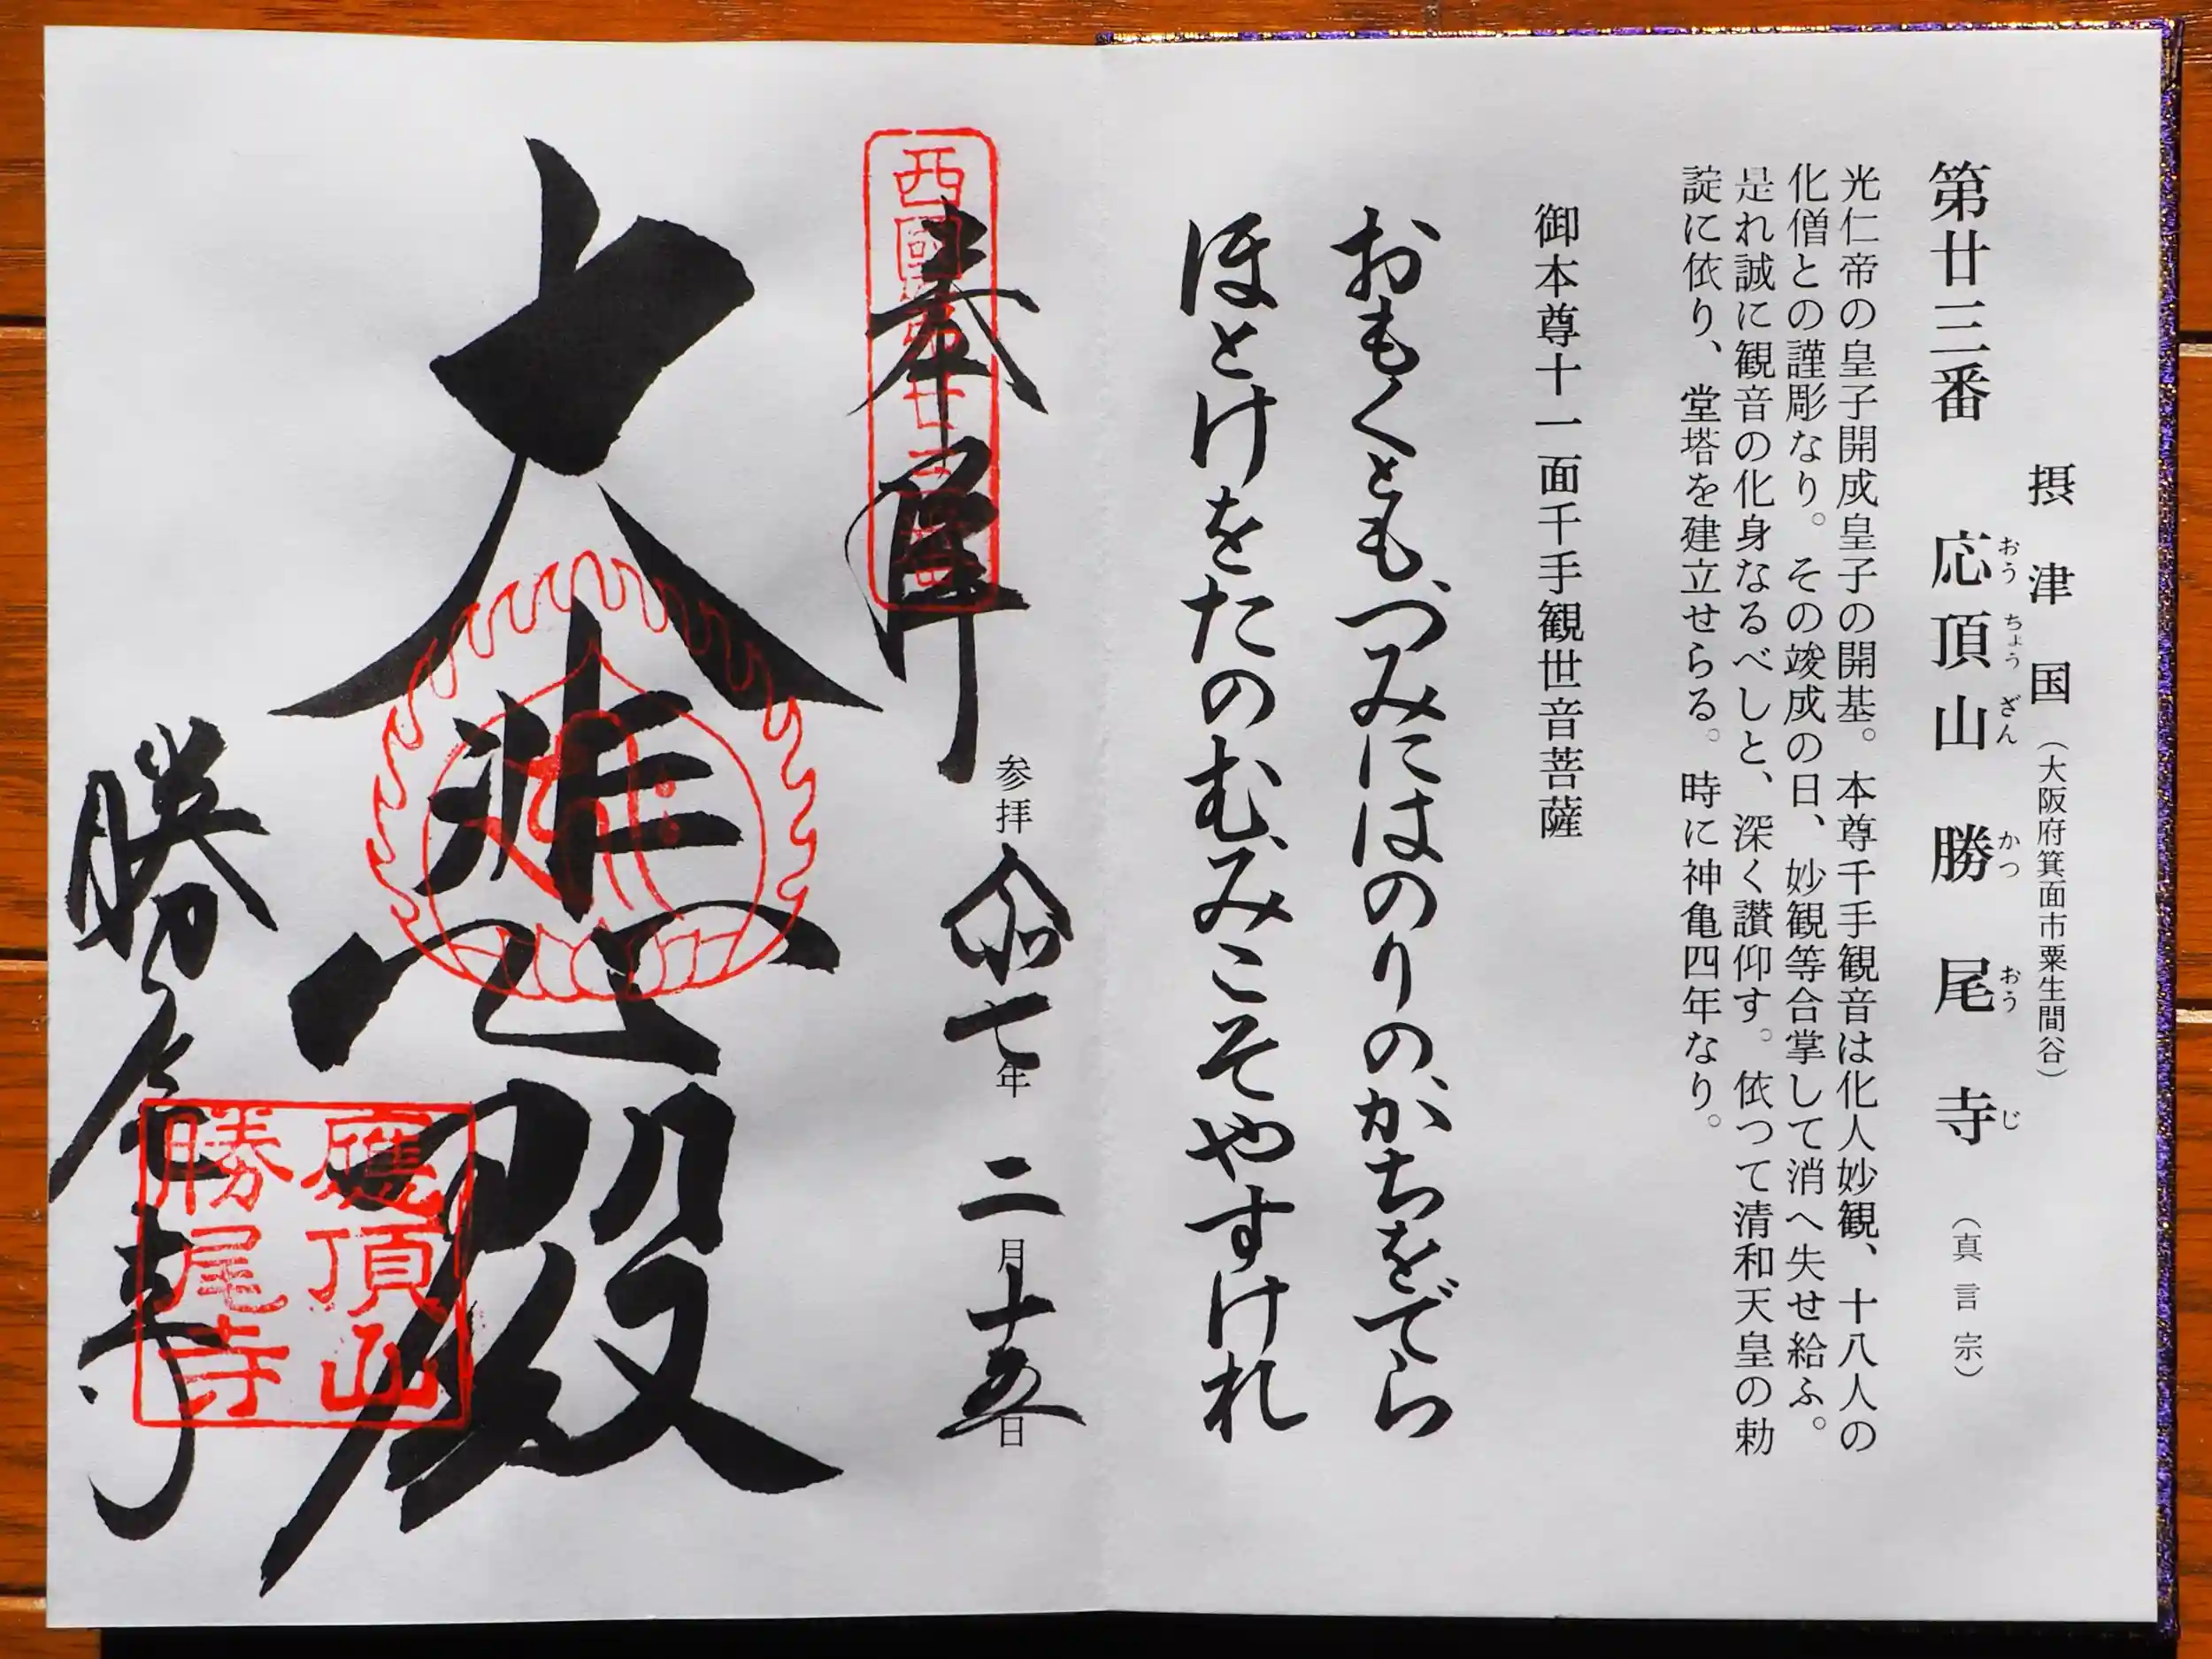 摂津国(大阪府箕面市粟生間谷)
第廿三番 応頂山勝尾寺(真言宗)
おうちょうざん かつおうじ
光仁帝の皇子開成皇子の開基。本尊千手観音は化人妙観、十八人の
化僧との謹彫なり。その竣成の日、妙観等合掌して消へ失せ給ふ。
是れ誠に観音の化身なるべしと、深く讃仰す。依つて清和天皇の勅
諚に依り、堂塔を建立せらる。時に神亀四年なり。
御本尊十一面千手観世音菩薩
おもくとも、つみにはのりの、かちをでら
ほとけをたのむ、みこそやすけれ
西國第廿三番
奉拝
参拝 令和七年 二月十五日
大悲殿
勝尾寺
應頂山
勝尾寺